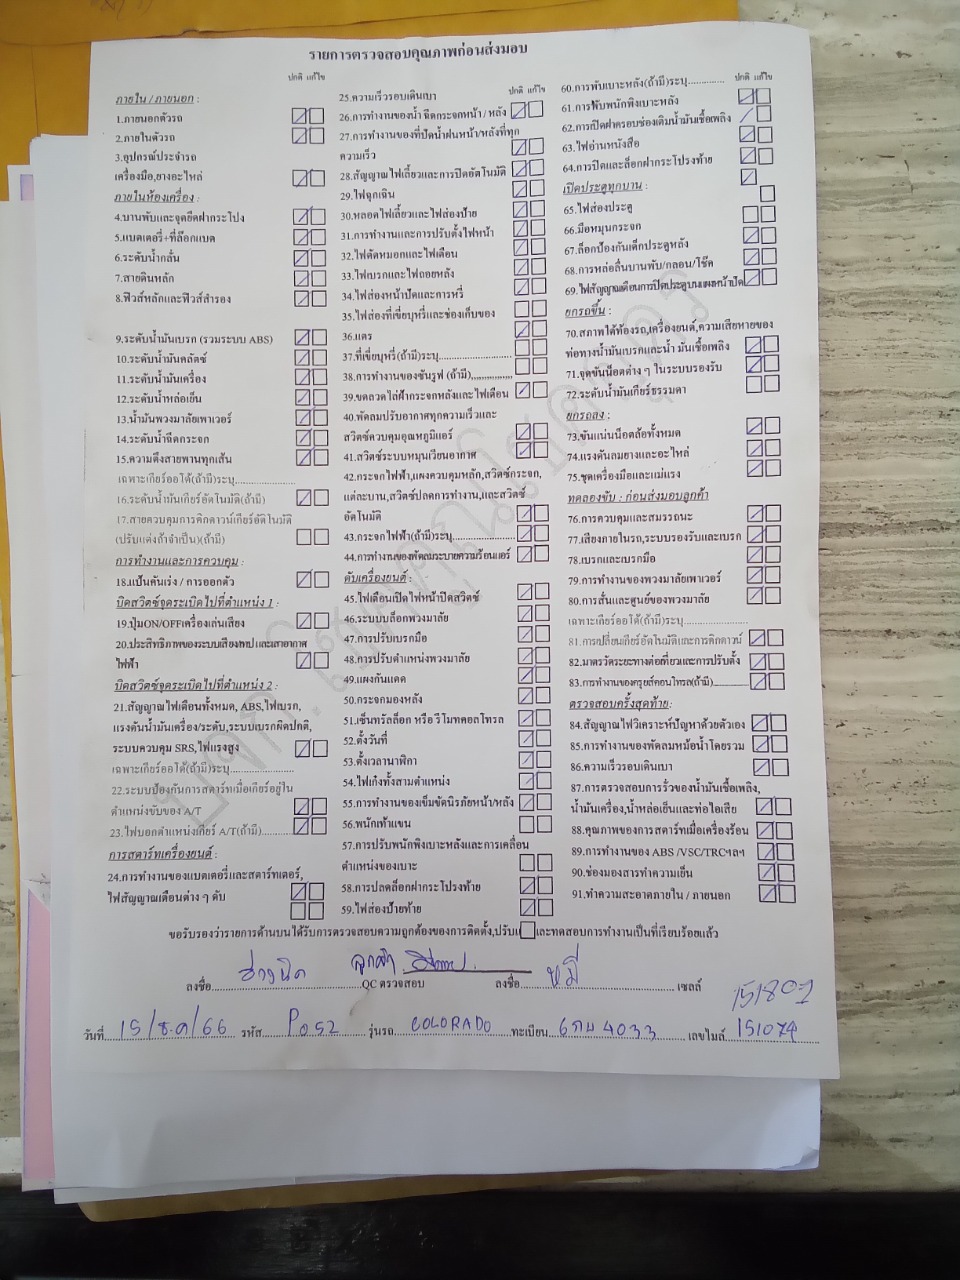 รายการตรวจสอบคุณภาพก่อนส่งมอบ
ปกติ แก้ไข
ภายใน / ภายนอก :
1.ภายนอกตัวรถ
2.ภายในตัวรถ
3.อุปกรณ์ประจำรถ
เครื่องมือ,ยางอะไหล่
ภายในห้องเครื่อง :
4.บานพับและจุดยึดฝากระโปง
5.แบตเตอรี่+ที่ล๊อกแบต
6.ระดับน้ำกลั่น
7.สายดินหลัก
8.ฟิวส์หลักและฟิวส์สำรอง
9.ระดับน้ำมันเบรก (รวมระบบ ABS)
10.ระดับน้ำมันคลัตช์
11.ระดับน้ำมันเครื่อง
12.ระดับน้ำหล่อเย็น
13.น้ำมันพวงมาลัยพาเวอร์
14.ระดับน้ำฉีดกระจก
15.ความตึงสายพานทุกเส้น
เฉพาะเกียร์ออโต้(ถ้ามี)ระบุ....................
16.ระดับน้ำมันเกียร์อัตโนมัติ(ถ้ามี)
17.สายควบคุมการคิกดาวน์เกียร์อัตโนมัติ
(ปรับแต่งถ้าจำเป็น)(ถ้ามี)
การทำงานและการควบคุม :
18.แป้นคันเร่ง / การออกตัว
บิดสวิตช์จุดระเบิดไปที่ตำแหน่ง 1 :
19.ปุ่มON/OFFเครื่องเล่นเสียง
20.ประสิทธิภาพของระบบเสียงเทป และเสาอากาศ
ไฟฟ้า
บิดสวิตช์จุดระเบิดไปที่ตำแหน่ง 2 :
21.สัญญาณไฟเตือนทั้งหมด, ABS,ไฟเบรก,
แรงดันน้ำมันเครื่อง/ระดับ,ระบบเบรกผิดปกติ,
ระบบควบคุม SRS,ไฟแรงสูง
เฉพาะเกียร์ออโต้(ถ้ามี)ระบุ....................
22.ระบบป้องกันการสตาร์ทเมื่อเกียร์อยู่ใน
ตำแหน่งขับของ A/T
23.ไฟบอกตำแหน่งเกียร์ A/T(ถ้ามี)..........
การสตาร์ทเครื่องยนต์ :
24.การทำงานของแบตเตอรี่และสตาร์ทเตอร์,
ไฟสัญญาณเตือนต่าง ๆ ดับ
ปกติ แก้ไข
25.ความเร็วรอบเดินเบา
26.การทำงานของน้ำ ฉีดกระจกหน้า / หลัง
27.การทำงานของที่ปัดน้ำฝนหน้า/หลังที่ทุก
ความเร็ว
28.สัญญาณไฟเลี้ยวและการปิดอัตโนมัติ
29.ไฟฉุกเฉิน
30.หลอดไฟเลี้ยวและไฟส่องป้าย
31.การทำงานและการปรับตั้งไฟหน้า
32.ไฟตัดหมอกและไฟเตือน
33.ไฟเบรกและไฟถอยหลัง
34.ไฟส่องหน้าปัดและการหรี่
35.ไฟส่องที่เขี่ยบุหรี่และช่องเก็บของ
36.แตร
37.ที่เขี่ยบุหรี่(ถ้ามี)ระบุ....................
38.การทำงานของซันรูฟ (ถ้ามี)..............
39.ขดลวดไล่ฝ้ากระจกหลังและไฟเตือน
40.พัดลมปรับอากาศทุกความเร็วและ
สวิตช์ควบคุมอุณหภูมิแอร์
41.สวิตช์ระบบหมุนเวียนอากาศ
42.กระจกไฟฟ้า,แผงควบคุมหลัก,สวิตช์กระจก,
แต่ละบาน,สวิตช์ปลดการทำงาน,และสวิตช์
อัตโนมัติ
43.กระจกไฟฟ้า(ถ้ามี)ระบุ....................
44.การทำงานของพัดลมระบายความร้อนแอร์
ดับเครื่องยนต์ :
45.ไฟเตือนเปิดไฟหน้าปิดสวิตช์
46.ระบบล็อกพวงมาลัย
47.การปรับเบรกมือ
48.การปรับตำแหน่งพวงมาลัย
49.แผงกันแดด
50.กระจกมองหลัง
51.เซ็นทรัลล็อก หรือ รีโมทคอลโทรล
52.ตั้งวันที่
53.ตั้งเวลานาฬิกา
54.ไฟเก๋งทั้งสามตำแหน่ง
55.การทำงานของเข็มขัดนิรภัยหน้า/หลัง
56.พนักเท้าแขน
57.การปรับพนักพิงเบาะหลังและการเคลื่อน
ตำแหน่งของเบาะ
58.การปลดล็อกฝากระโปรงท้าย
59.ไฟส่องป้ายท้าย
60.การพับเบาะหลัง(ถ้ามี)ระบุ..............
ปกติ แก้ไข
61.การพับพนักพิงเบาะหลัง
62.การปิดฝาครอบช่องเติมน้ำมันเชื้อเพลิง
63.ไฟอ่านหนังสือ
64.การปิดและล็อกฝากระโปรงท้าย
เปิดประตูทุกบาน :
65.ไฟส่องประตู
66.มือหมุนกระจก
67.ล็อกป้องกันเด็กประตูหลัง
68.การหล่อลื่นบานพับ/กลอน/โช๊ค
69.ไฟสัญญาณเตือนการปิดประตูบนแผงหน้าปัด
ยกรถขึ้น :
70.สภาพใต้ท้องรถ,เครื่องยนต์,ความเสียหายของ
ท่อทางน้ำมันเบรกและน้ำ มันเชื้อเพลิง
71.จุดขันน็อตต่าง ๆ ในระบบรองรับ
72.ระดับน้ำมันเกียร์ธรรมดา
ยกรถลง :
73.ขันแน่นน็อตล้อทั้งหมด
74.แรงดันลมยางและอะไหล่
75.ชุดเครื่องมือและแม่แรง
ทดลองขับ : ก่อนส่งมอบลูกค้า
76.การควบคุมและสมรรถนะ
77.เสียงภายในรถ,ระบบรองรับและเบรก
78.เบรกและเบรกมือ
79.การทำงานของพวงมาลัยเพาเวอร์
80.การสั่นและศูนย์ของพวงมาลัย
เฉพาะเกียร์ออโต้(ถ้ามี)ระบุ..............
81.การเปลี่ยนเกียร์อัตโนมัติและการคิกดาวน์
82.มาตรวัดระยะทางต่อเที่ยวและการปรับตั้ง
83.การทำงานของครุยส์คอนโทรล(ถ้ามี)..........
ตรวจสอบครั้งสุดท้าย :
84.สัญญาณไฟวิเคราะห์ปัญหาด้วยตัวเอง
85.การทำงานของพัดลมหม้อน้ำโดยรวม
86.ความเร็วรอบเดินเบา
87.การตรวจสอบการรั่วของน้ำมันเชื้อเพลิง,
น้ำมันเครื่อง,น้ำหล่อเย็นและท่อไอเสีย
88.คุณภาพของการสตาร์ทเมื่อเครื่องร้อน
89.การทำงานของ ABS /VSC/TRCฯลฯ
90.ช่องมองสารทำความเย็น
91.ทำความสะอาดภายใน / ภายนอก
ขอรับรองว่ารายการด้านบนได้รับการตรวจสอบความถูกต้องของการติดตั้ง,ปรับ และทดสอบการทำงานเป็นที่เรียบร้อยแล้ว
ลงชื่อ ช่างนิค ลูกค้า QC ตรวจสอบ ลงชื่อ หมี เซลล์
151801
วันที่ 15/ธ.ค/66 รหัส P052 รุ่นรถ COLORADO ทะเบียน 6กบ4033 เลขไมล์ 151074